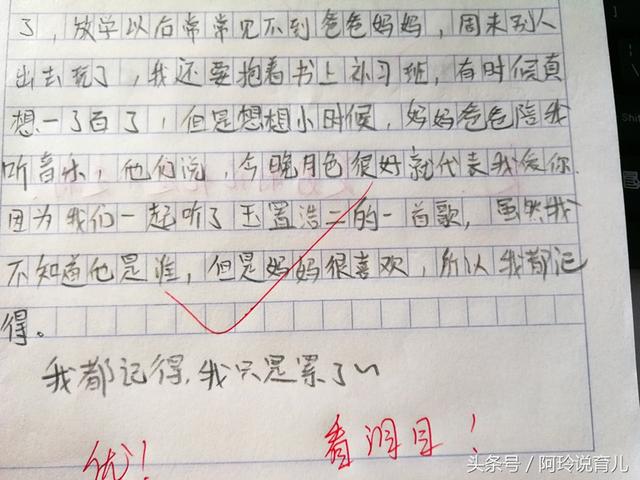 了，放学以后常常见不到爸爸妈妈，周末别人
出去玩了，我还要抱着书上补习班，有时候真
想一了百了，但是想想小时候，妈妈爸爸陪我
听音乐，他们说，今晚月色很好就代表我爱你.
因为我们一起听了玉置浩二的一首歌，虽然我
不知道他是谁，但是妈妈很喜欢，所以我都记
得。
我都记得，我只是累了~
看泪目！
优！
头条号／阿玲说育儿